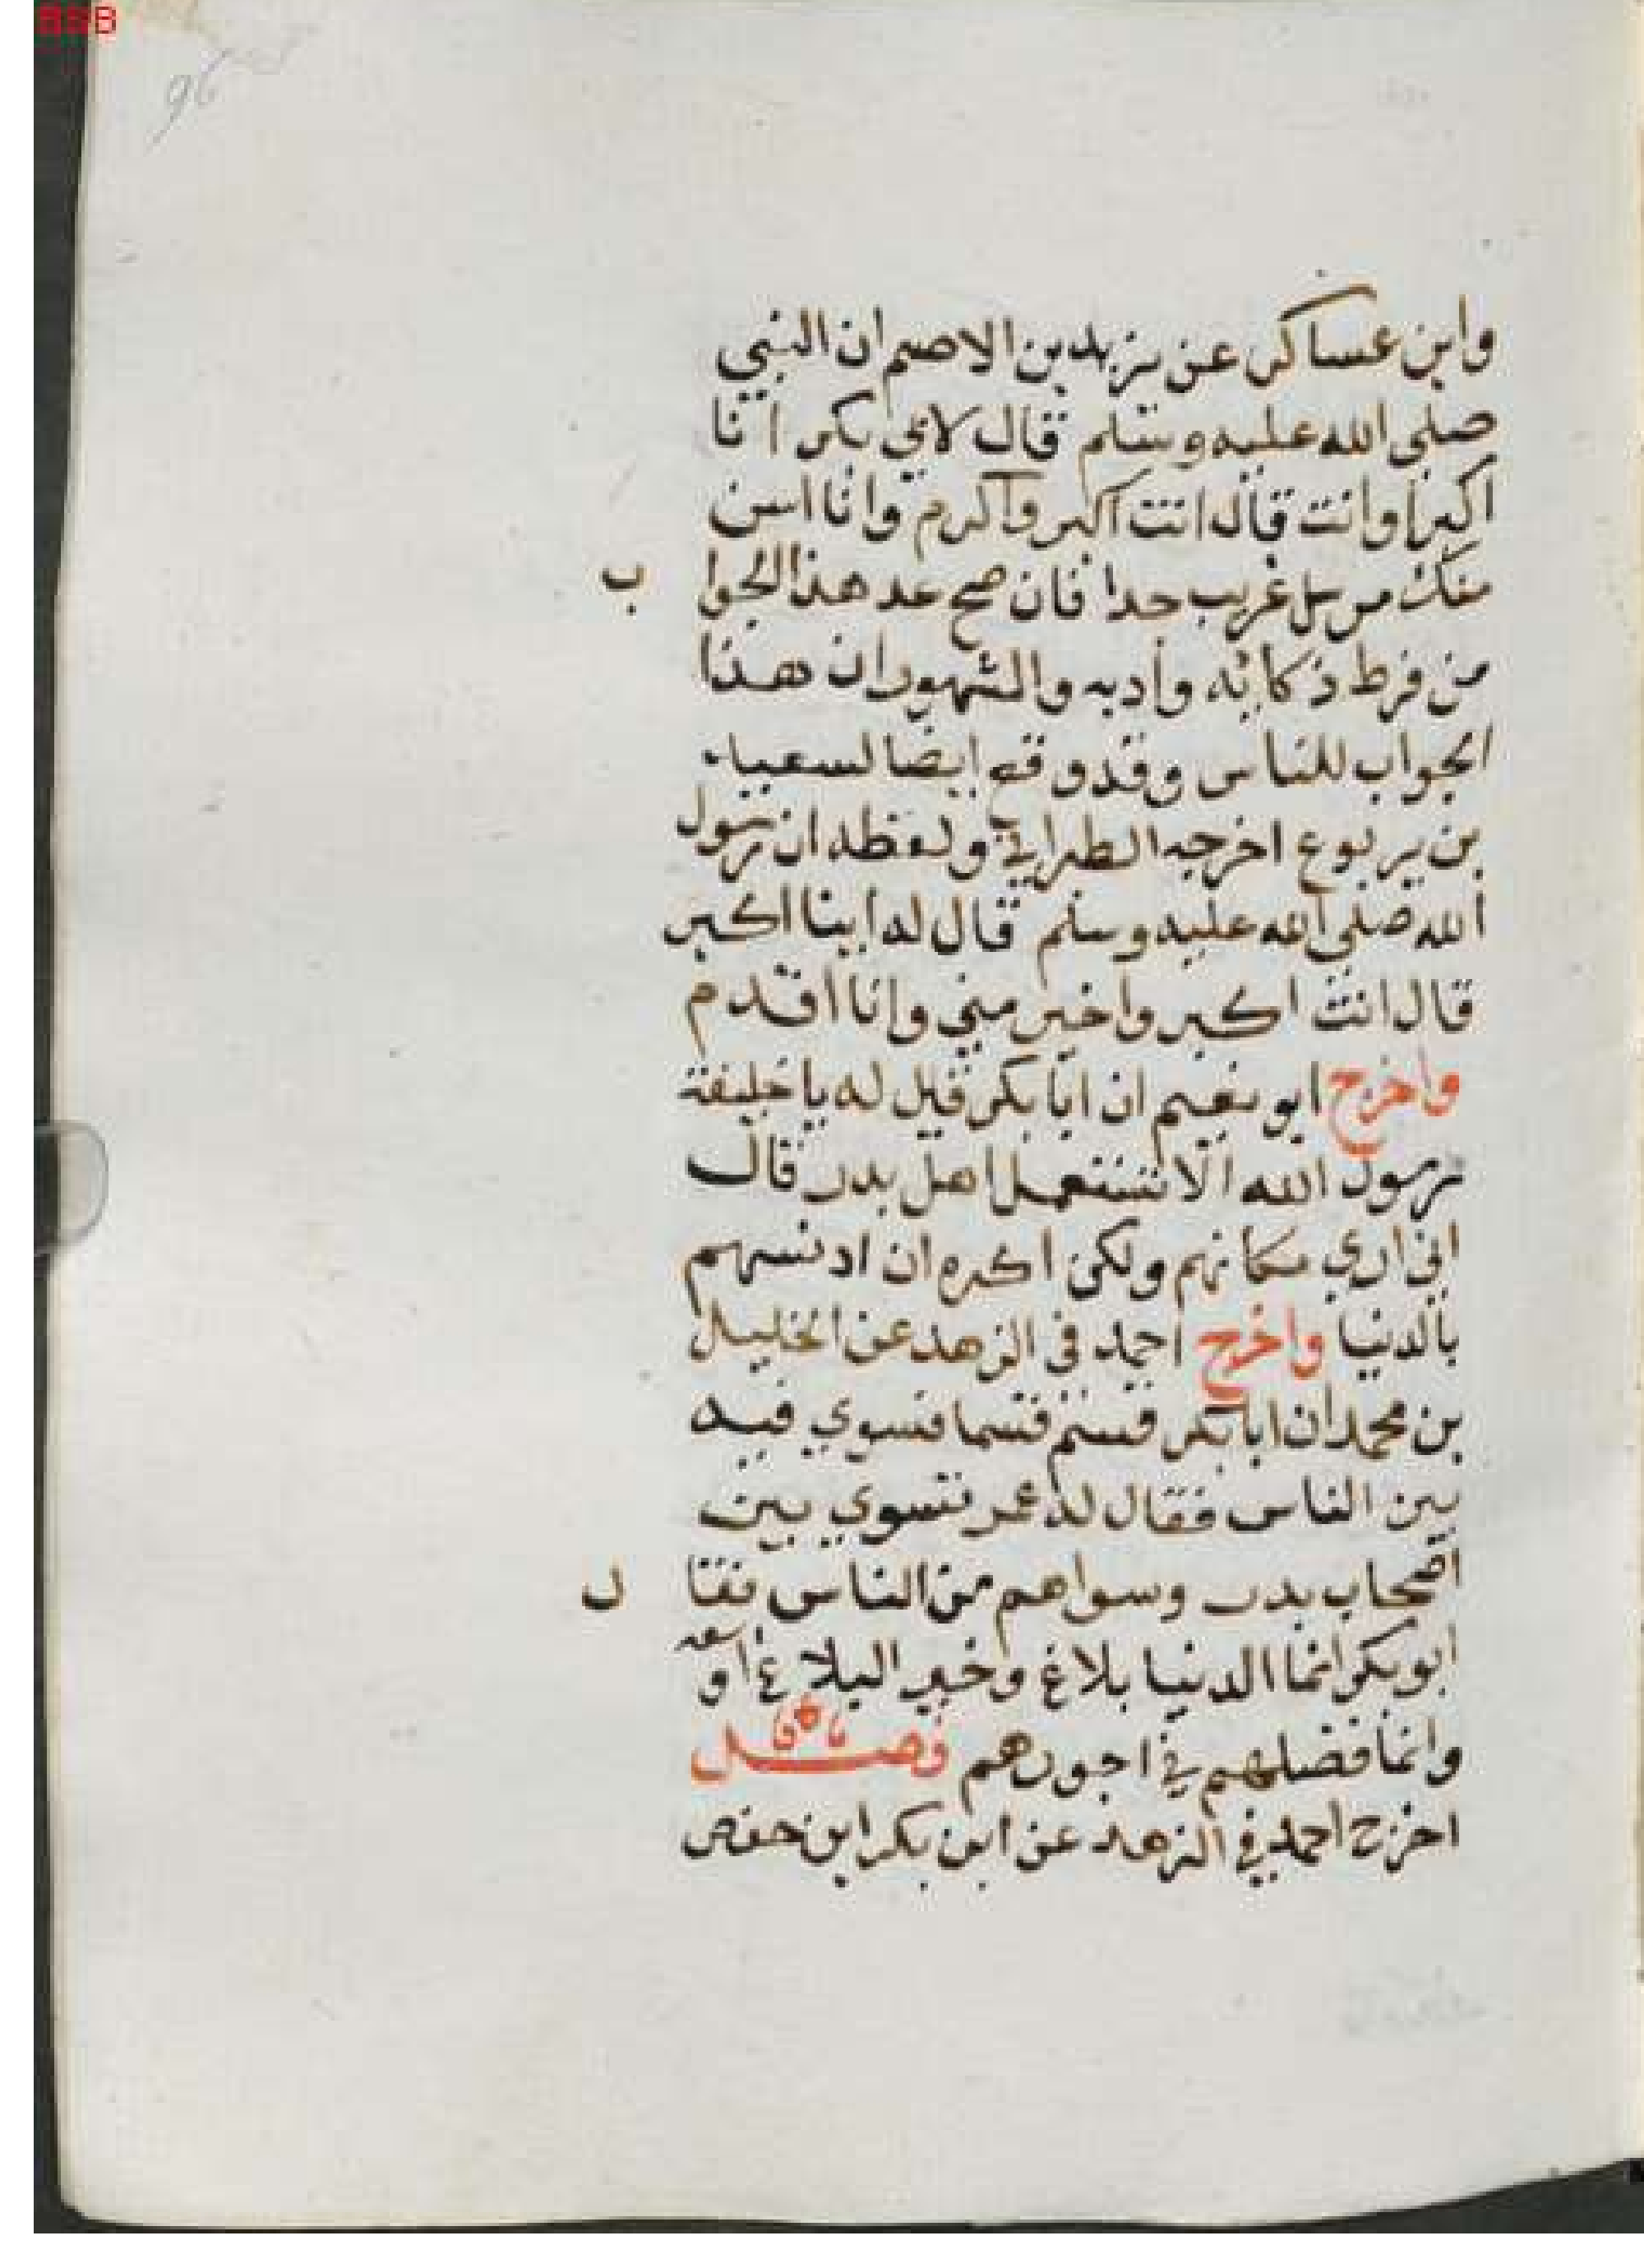 96
وابن عساكر عن يزيد بن الاصم ان النبي
صلى الله عليه وسلم قال لابي بكر انا
اكبر اوانت قال انت اكبر واكرم وانا اسن
منك مرسل غريب جدا فان صح عد هذا الجوا ب
من فرط ذكائه وادبه والشهور ان هذا
الجواب للناس وقد وقع ايضا لسعيد
بن يربوع اخرجه الطبراني ولفظه ان رسول
الله صلى الله عليه وسلم قال له اينا اكبر
قال انت اكبر واخير مني وانا اقدم
واخرج ابو نعيم ان ابا بكر قيل له يا خليفة
رسول الله الا تستعمل اهل بدر قال
اني اري مكانهم ولكن اكره ان ادنسهم
بالدنيا واخرج احمد في الزهد عن الخليل
بن محمد ان ابا بكر قسم قسما فسوي فيه
بين الناس فقال له عمر تسوي بين
اصحاب بدر وسواهم من الناس فقا ل
ابو بكر انما الدنيا بلاغ وخير البلاغ اوسعه
وانما فضلهم في اجورهم فصل
اخرج احمد في الزهد عن ابن بكر ابن حفص